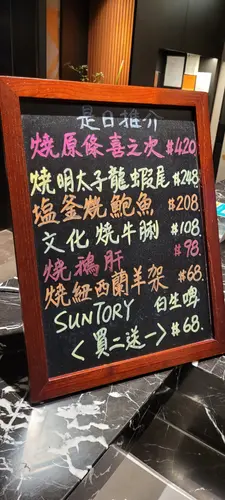 是日推介
燒原條喜之次 $420
燒明太子龍蝦尾 $248
塩釜燒鮑魚 $208.
文化燒牛脷 $108
燒鵝肝 $98.
燒紐西蘭羊架 $68.
SUNTORY 白生啤
<買二送一> $68.